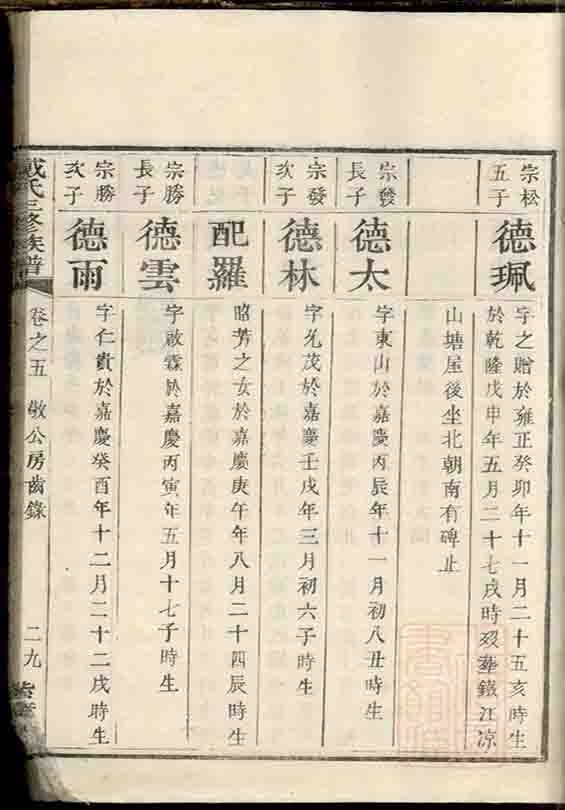 宗松
五子
德珮
字之贈於雍正癸卯年十一月二十五亥時生
於乾隆戊申年五月二十七戌時歿葬鐵江凉
山塘屋後坐北朝南有碑止
宗發
長子
德太
字東山於嘉慶丙辰年十一月初八丑時生
宗發
次子
德林
字允茂於嘉慶壬戌年三月初六子時生
配羅
昭芳之女於嘉慶庚午年八月二十四辰時生
宗勝
長子
德雲
字啟霖於嘉慶丙寅年五月十七子時生
宗勝
次子
德雨
字仁貴於嘉慶癸酉年十二月二十二戌時生
戴氏三修族譜
卷之五 敬公房齒錄
二九